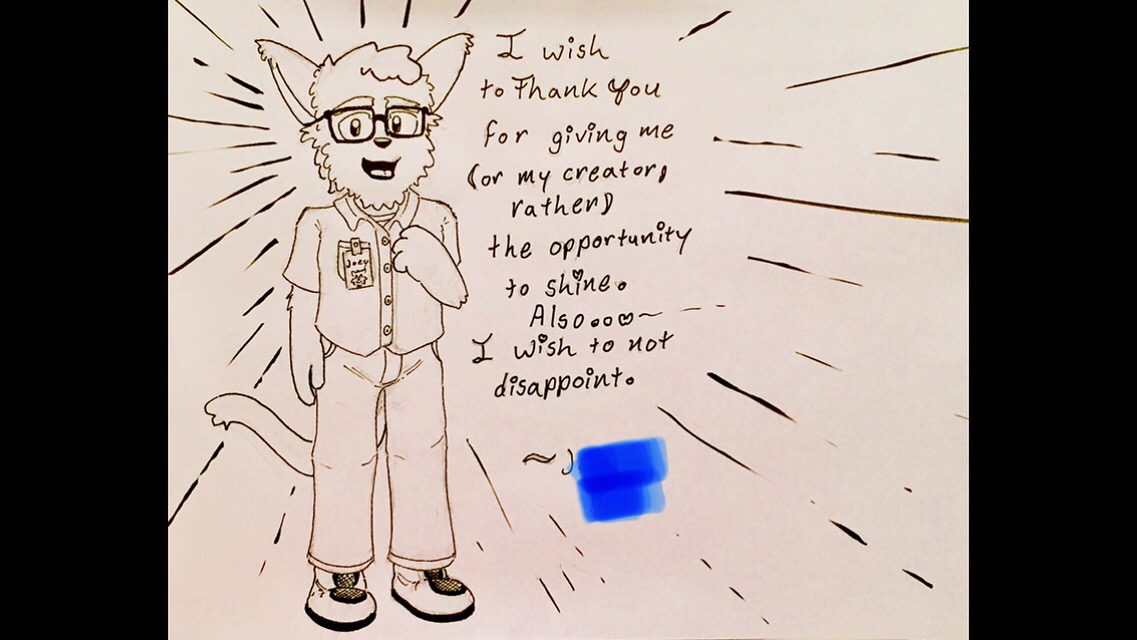 I wish
to Thank You
for giving me
(or my creator,
rather)
the opportunity
to shine.
Also...♡~
I wish to not
disappoint.
~
Joey